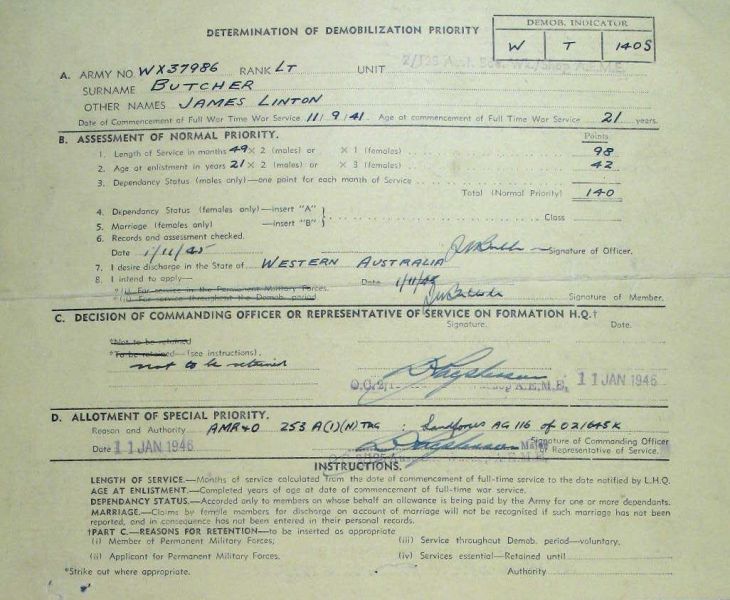 DETERMINATION OF DEMOBILIZATION PRIORITY
DEMOB. INDICATOR
W T 140S
A. ARMY NO. WX37986 RANK LT UNIT
SURNAME BUTCHER
OTHER NAMES JAMES LINTON
Date of Commencement of Full War Time War Service 11/9/41. Age at commencement of Full Time War Service 21 years.
B. ASSESSMENT OF NORMAL PRIORITY. Points
1. Length of Service in months 49 × 2 (males) or × 1 (females) 98
2. Age at enlistment in years 21 × 2 (males) or × 3 (females) 42
3. Dependency Status (males only)—one point for each month of Service
Total (Normal Priority) 140
4. Dependency Status (females only)—insert "A"
5. Marriage (females only) —insert "B" Class
6. Records and assessment checked.
Date 1/11/45 Signature of Officer.
7. I desire discharge in the State of WESTERN AUSTRALIA
8. I intend to apply— Date 1/11/45
*(i) For service in the Permanent Military Forces.
*(ii) For service throughout the Demob. period Signature of Member.
C. DECISION OF COMMANDING OFFICER OR REPRESENTATIVE OF SERVICE ON FORMATION H.Q.†
Signature. Date.
*Not to be retained
*To be retained—(see instructions).
not to be retained
11 JAN 1946
D. ALLOTMENT OF SPECIAL PRIORITY.
Reason and Authority AMR&O 253 A(1)(N) TAG : Landforces AG 116 of 021645K
Date 11 JAN 1946 Signature of Commanding Officer
or Representative of Service.
INSTRUCTIONS.
LENGTH OF SERVICE.—Months of service calculated from the date of commencement of full-time service to the date notified by L.H.Q.
AGE AT ENLISTMENT.—Completed years of age at date of commencement of full-time war service.
DEPENDENCY STATUS.—Accorded only to members on whose behalf an allowance is being paid by the Army for one or more dependants.
MARRIAGE.—Claims by female members for discharge on account of marriage will not be recognised if such marriage has not been
reported, and in consequence has not been entered in their personal records.
†PART C.—REASONS FOR RETENTION—to be inserted as appropriate
(i) Member of Permanent Military Forces; (iii) Service throughout Demob. period—voluntary.
(ii) Applicant for Permanent Military Forces. (iv) Services essential—Retained until
*Strike out where appropriate. Authority